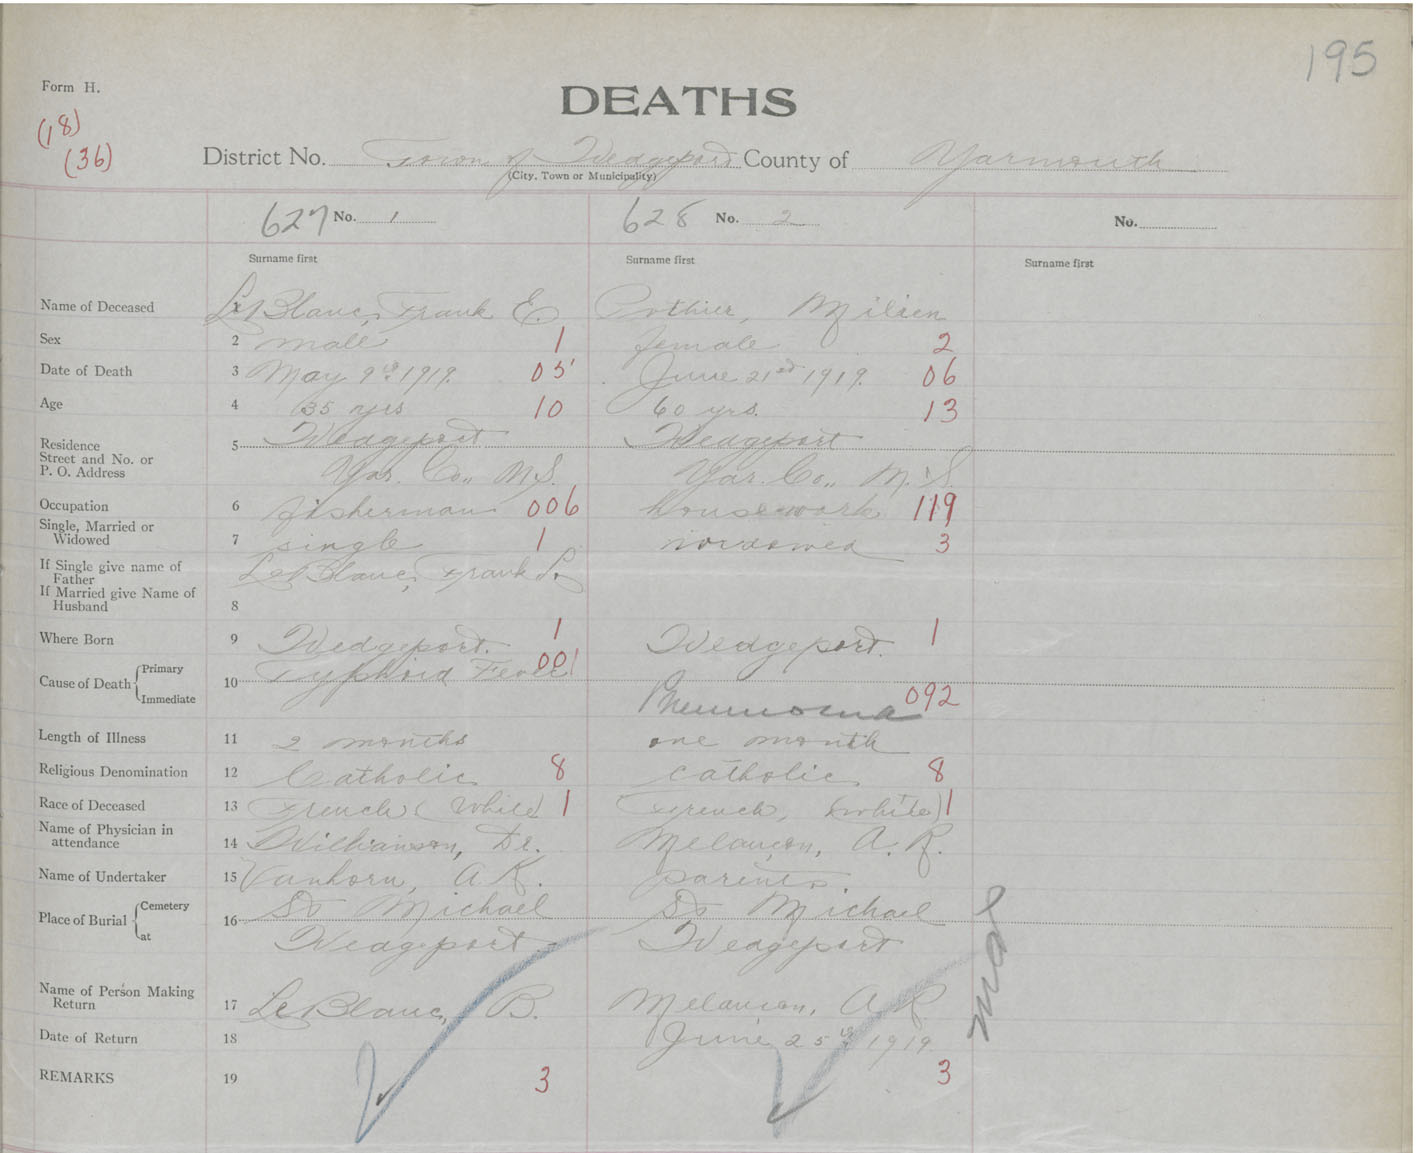 195
Form H.
DEATHS
(18)
(36)
District No. Town of Wedgeport County of Yarmouth
(City, Town or Municipality)
627 No. 1 628 No. 2 No.
Surname first Surname first Surname first
Name of Deceased 1 LeBlanc, Frank E. Pothier, Milien
Sex 2 male 1 female 2
Date of Death 3 May 9th 1919. 05 June 21st 1919. 06
Age 4 35 yrs 10 60 yrs. 13
Residence 5 Wedgeport Wedgeport
Street and No. or
P. O. Address Yar. Co., N.S. Yar. Co., N.S.
Occupation 6 fisherman 006 housework 119
Single, Married or
Widowed 7 single 1 widowed 3
If Single give name of
Father LeBlanc, Frank S.
If Married give Name of
Husband 8
Where Born 9 Wedgeport. 1 Wedgeport. 1
Cause of Death Primary 10 Typhoid Fever 001
Immediate Pneumonia 092
Length of Illness 11 2 months one month
Religious Denomination 12 Catholic 8 catholic 8
Race of Deceased 13 French (White) 1 French, (white) 1
Name of Physician in
attendance 14 Williamson, Dr. Melançon, A. R.
Name of Undertaker 15 Vanhorn, A K.
Place of Burial Cemetery 16 St Michael St Michael
at Wedgeport Wedgeport
Name of Person Making
Return 17 LeBlanc, B. Melancon, A R.
Date of Return 18 June 25th 1919.
REMARKS 19 3 3